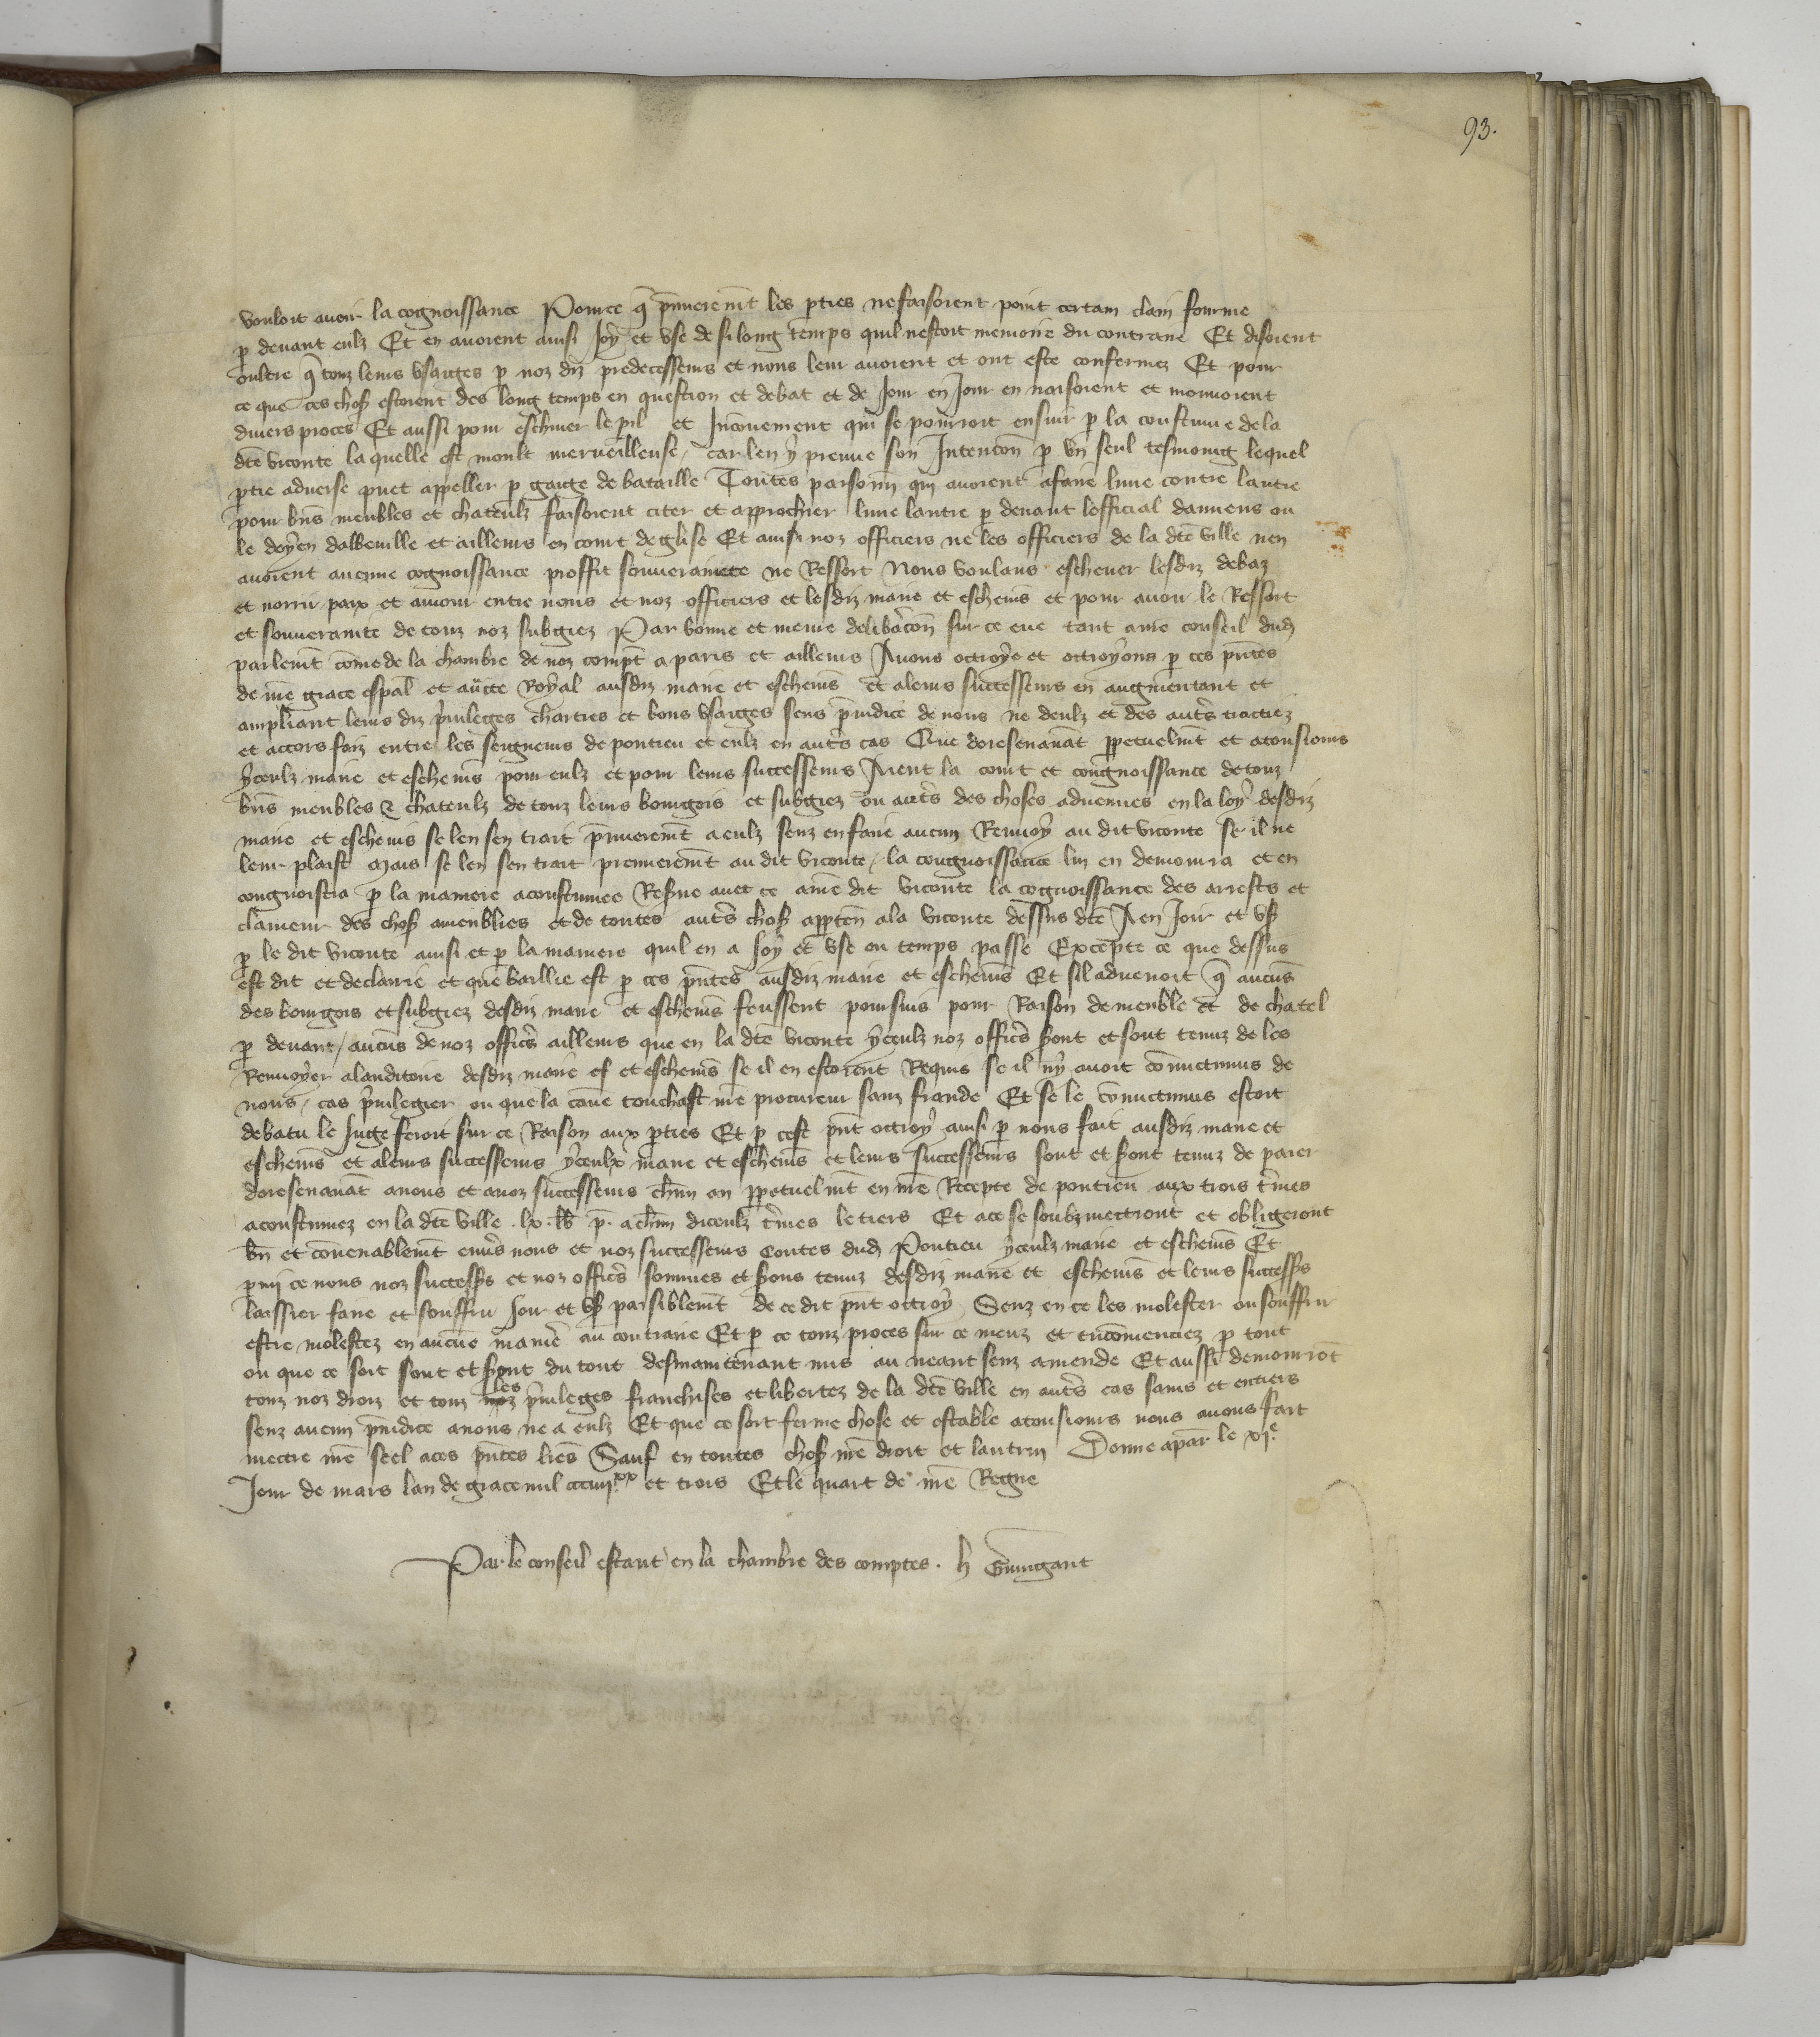 93.
vouloit avoir la cognoissance Pource q̃ p̃mierem̃t les p̃ties ne faisoient point certain claim fourme
p̱ devant eulz Et en avoient ainsi joy et usé de si long temps quil nestoit memoire du contraire Et disoient
oultre q̃ touz leurs usaiges p̱ noz diz predecesseurs et nous leur avoient et ont esté confermez Et pour
ce que ces chos̃ estoient des long temps en question et debat et de jour en jour en naisoient et mouvoient
divers proces Et aussi pour eschiver le p̱il et Inconvenient qui se pourroit ensuir p̱ la coustume de la
dc̃e viconte laquelle est moult merveilleuse / car len y preuve son Intenc̃on p̱ un seul tesmoing lequel
p̱tie adverse puet appeller p̱ gaige de bataille Toutes personñ qui avoient afaire lune contre lautre
pour biñs meubles et chateulz faisoient citer et approchier lune lautre p̱ devant lofficial damiens ou
le doyen dabbeville et ailleurs en court deglise Et ainsi noz officiers ne les officiers de la dc̃e ville nen
avoient aucune cognoissance proffit souverainete ne Ressort Nous voulans eschever lesdiz debaz
et norrir paix et amour entre nous et noz officiers et lesdiz maire et eschevins et pour avoir le Ressort
et souverainte de touz noz subgiez Par bonne et meure delib̃acõn sur ce eue tant a nr̃e conseil dud̃
parlem̃t cõme de la chambre de noz compt̃ a paris et ailleurs Avons octroye et octroyons p̱ ces p̃ntes
de nr̃e grace esp̃al et auc̃te Royal ausdiz maire et eschevins et aleurs successeurs en augmentant et
ampliant leurs diz p̃vileges chartres et bons usaiges sens p̃iudice de nous ne deulz et des aut̃s traictiez
et accors faiz entre les seigneurs de pontieu et eulz en aut̃s cas Que doresenavãt p̱petuelm̃t et atousiours
yceulz maire et eschevins pour eulz et pour leurs successeurs Aient la court et congnoissance de touz
biñs meubles & chateulz de touz leurs bourgois et subgiez ou aut̃s des choses advenues en la loy desdiz
maire et eschevins se len sen trait p̃mierem̃t a eulz senz en faire aucun Renvoy au dit viconte se il ne
leur plaist Mais se len sen trait premierem̃t au dit viconte / la congnoissance lui en demourra et en
congnoistra p̱ la maniere acoustumee Reserve avec ce a nr̃e dit viconte la cognoissance des arrests et
clameur des chos̃ ameublies et de toutes aut̃s chos̃ app̱teñ ala viconte dessus dc̃e A en Joir et us̃
p̱ le dit viconte ainsi et p̱ la maniere quil en a joy et usé ou temps passe Excepte ce que dessus
est dit et declairie et que baillie est p̱ ces p̃ntes ausdiz maire et eschevins Et sil advenoit q̃ aucuns
des bourgois et subgiez desdiz maire et eschevins feussent poursuis pour Raison de meuble et de chatel
p̱ devant / aucuns de noz offic̃s ailleurs que en la dc̃e viconte yceulz noz offic̃s s̃ont et sont tenuz de les
Renvoyer alauditoire desdiz maire es et eschevins se il en estoient Requis se il ny avoit cõmictimus de
nous / cas p̃vilegier ou que la cause touchast nr̃e procureur sanz fraude Et se le cõmictimus estoit
debatu le Juge feroit sur ce Raison aux p̱ties Et p̱ cest p̃nt octroy ainsi p̱ nous fait ausdiz maire et
eschevins et aleurs successeurs yceulx maire et eschevins et leurs successeurs sont et s̃ont tenuz de paier
doresenavãt anous et anoz successeurs chc̃un an p̱petuelm̃t en nr̃e Recepte de pontieu aux trois t̃mes
acoustumez en la dc̃e ville . lx . lb̃ p̃. a chc̃un diceulz t̃mes le tiers Et ace se soubzmectront et obligeront
bñ et convenablem̃t enṽs nous et noz successeurs Contes dud̃ Pontieu yceulz maire et eschevins Et
p̱mi ce nous noz success̃s et noz offic̃s sommes et s̃ons tenuz desdiz maire et eschevins et leurs success̃s
laissier faire et souffrir Joir et us̃ paisiblem̃t de ce dit p̃nt octroy Senz en ce les molester ou souffrir
estre molestez en aucune manie᷑ au contraire Et p̱ ce touz proces sur ce meuz et encõmenciez p̱ tout
ou que ce soit sont et s̃ont du tout desmaintenant mis au neant senz amende Et aussi demourrõt
touz noz droiz et touz les p̃vileges franchises et libertez de la dc̃e ville en aut̃s cas sains et entiers
senz aucun p̃iudice anous ne a eulz Et que ce soit ferme chose et estable atousiours nous avons fait
mectre nr̃e seel aces p̃ntes lr̃es Sauf en toutes chos̃ nr̃e droit et lautruy Donne apar̃ le xj.e
Jour de mars lan de grace mil ccciiij.xx et trois Et le quart de nr̃e Regne
Par le conseil estant en la chambre des comptes . h Guingant